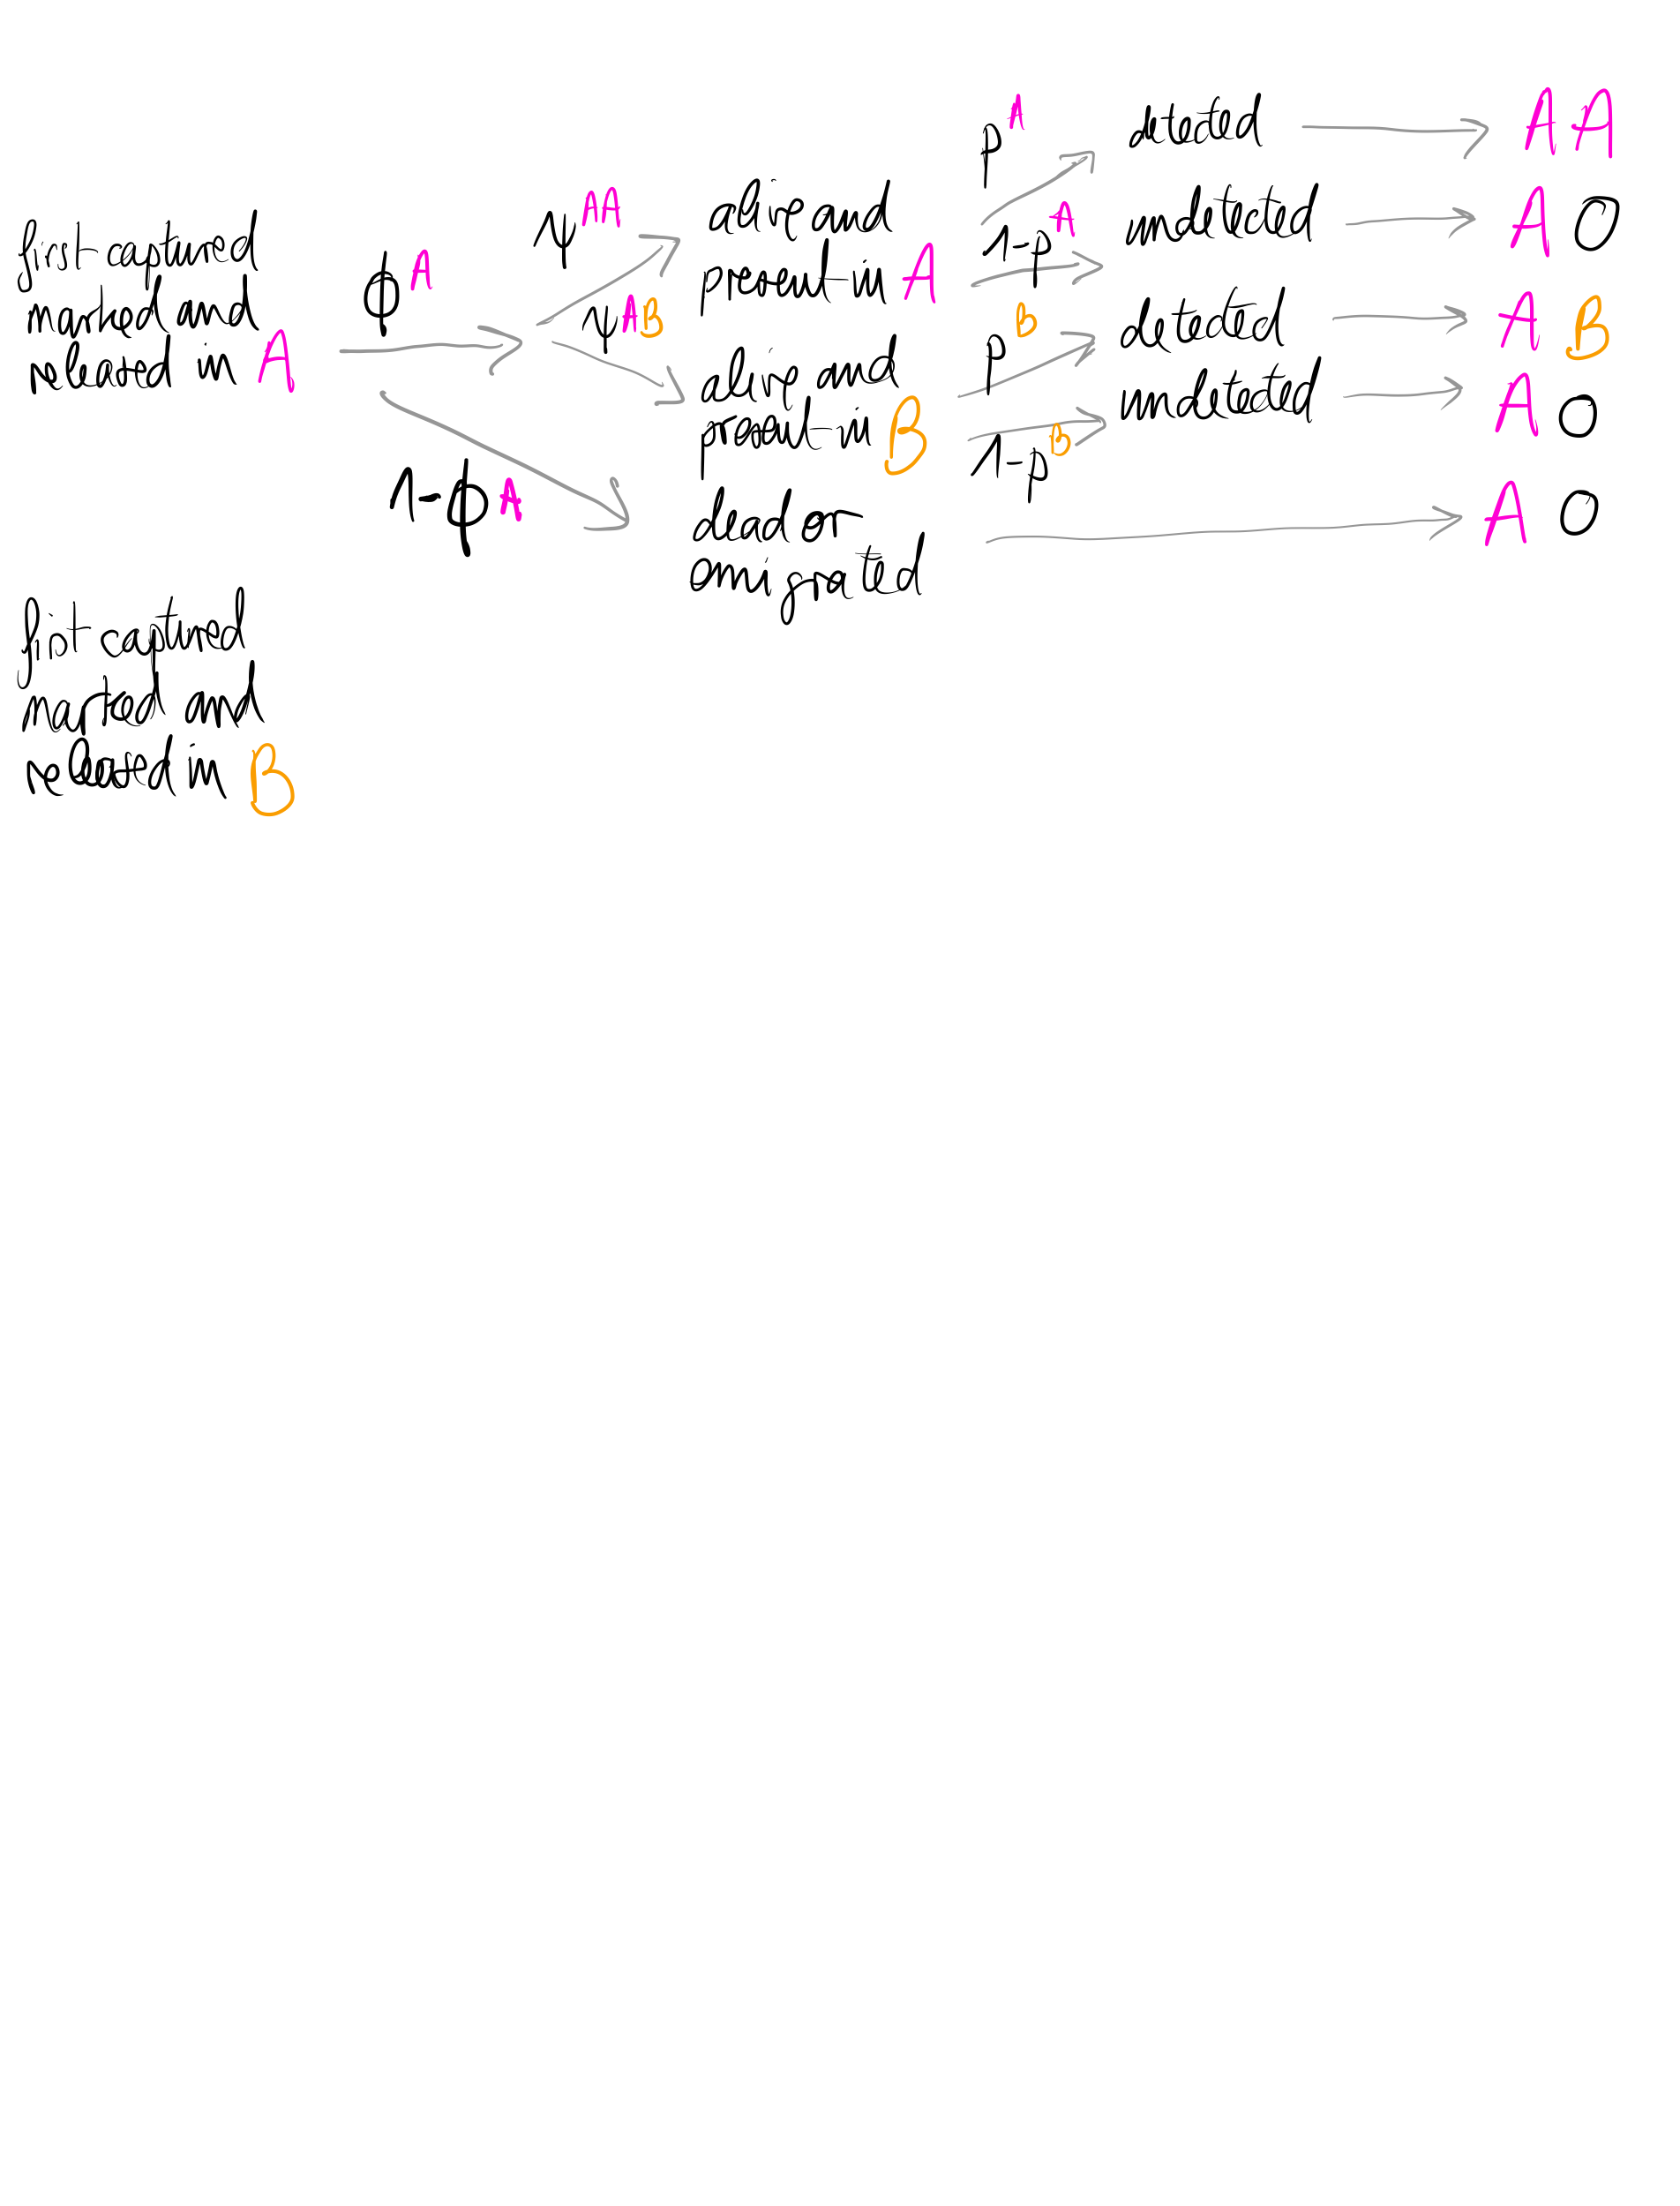 first captured
marked and
released in A
ϕ^A
1-ϕ^A
ψ^AA
ψ^AB
alive and
present in A
alive and
present in B
dead or
emigrated
p^A
1-p^A
p^B
1-p^B
detected
undetected
detected
undetected
A A
A O
A B
A O
A O
fist captured
marked and
released in B